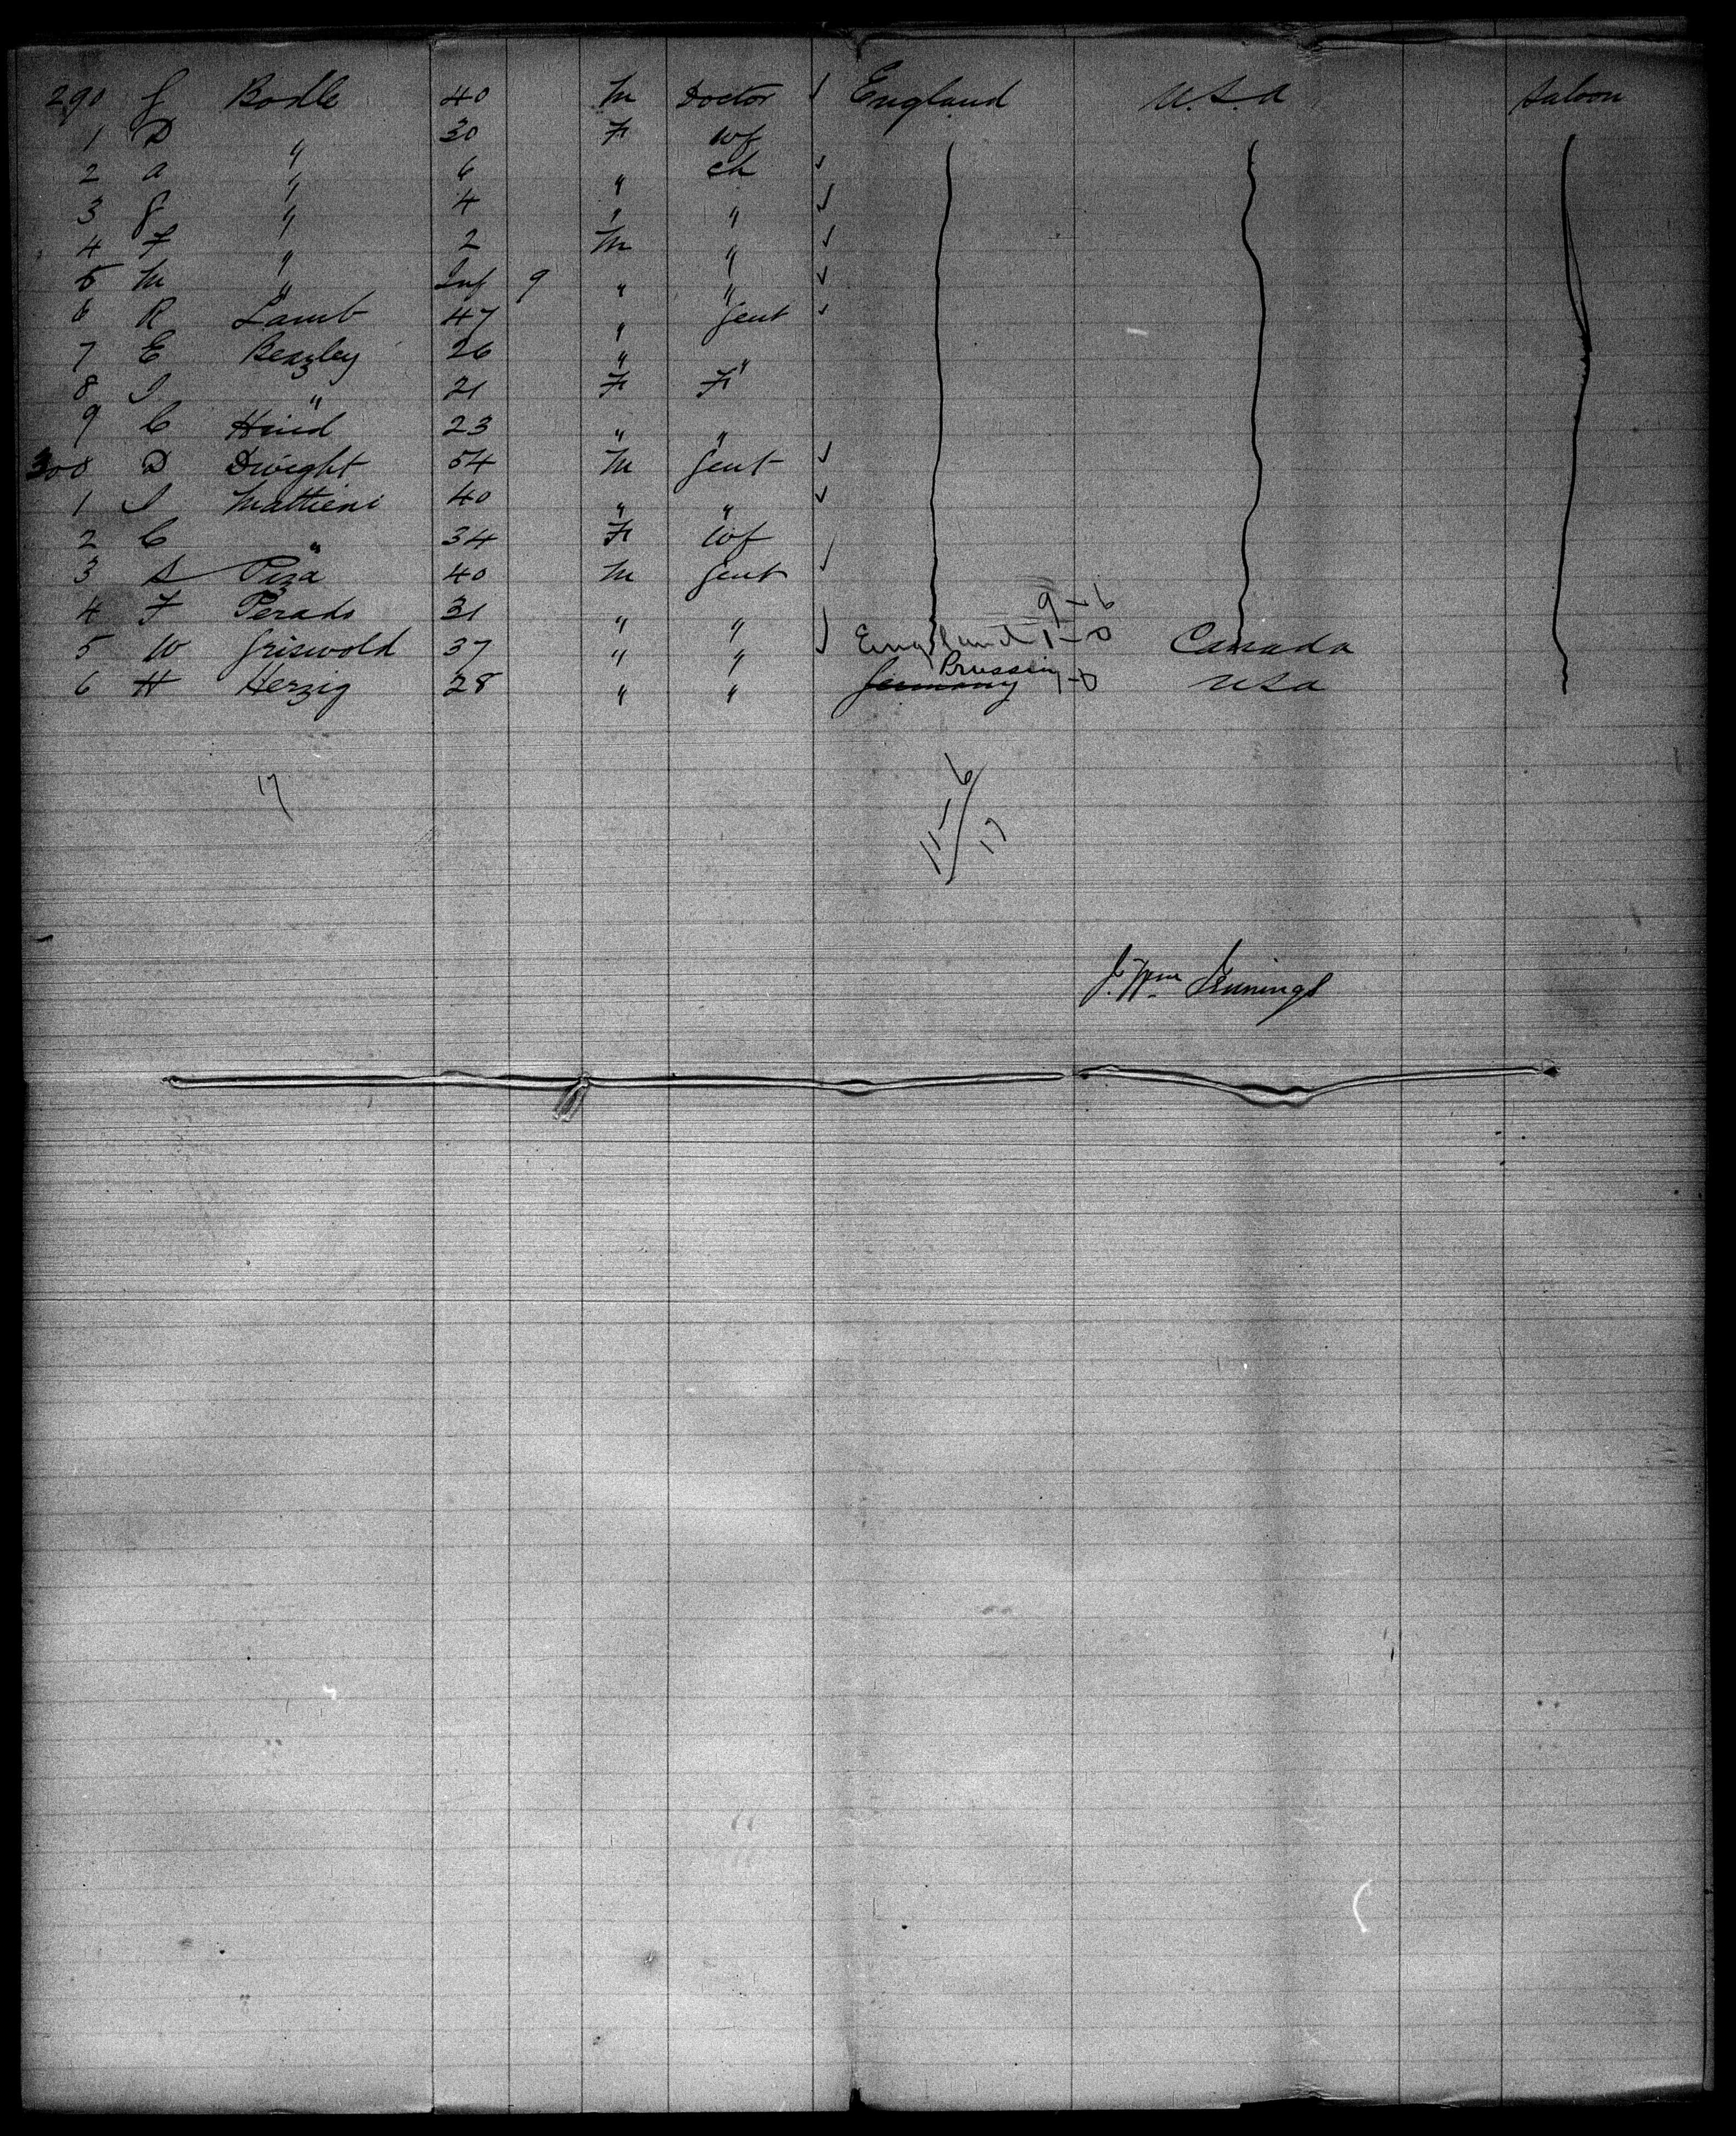 290 J Bodle 40 M Doctor ✓ England U.S.A Saloon
1 D " 30 F Wf
2 A " 6 " Ch ✓
3 J " 4 " " ✓
4 F " 2 M " ✓
5 M " Inf 9 " " ✓
6 R Lamb 47 " Gent ✓
7 E Beazley 26 " "
8 I " 21 F F
9 C Hind 23 " "
300 D Dwight 54 M Gent ✓
1 I Mattieni 40 " " ✓
2 C " 34 F Wf
3 A Piza 40 M Gent ✓
4 F Perads 31 " " 9 - 6
5 W Griswold 37 " " ✓ England 1 - 0 Canada
6 H Herzig 28 " " Germany Prussia 1-0 USA
17
11-6/17
J. Wm Jennings